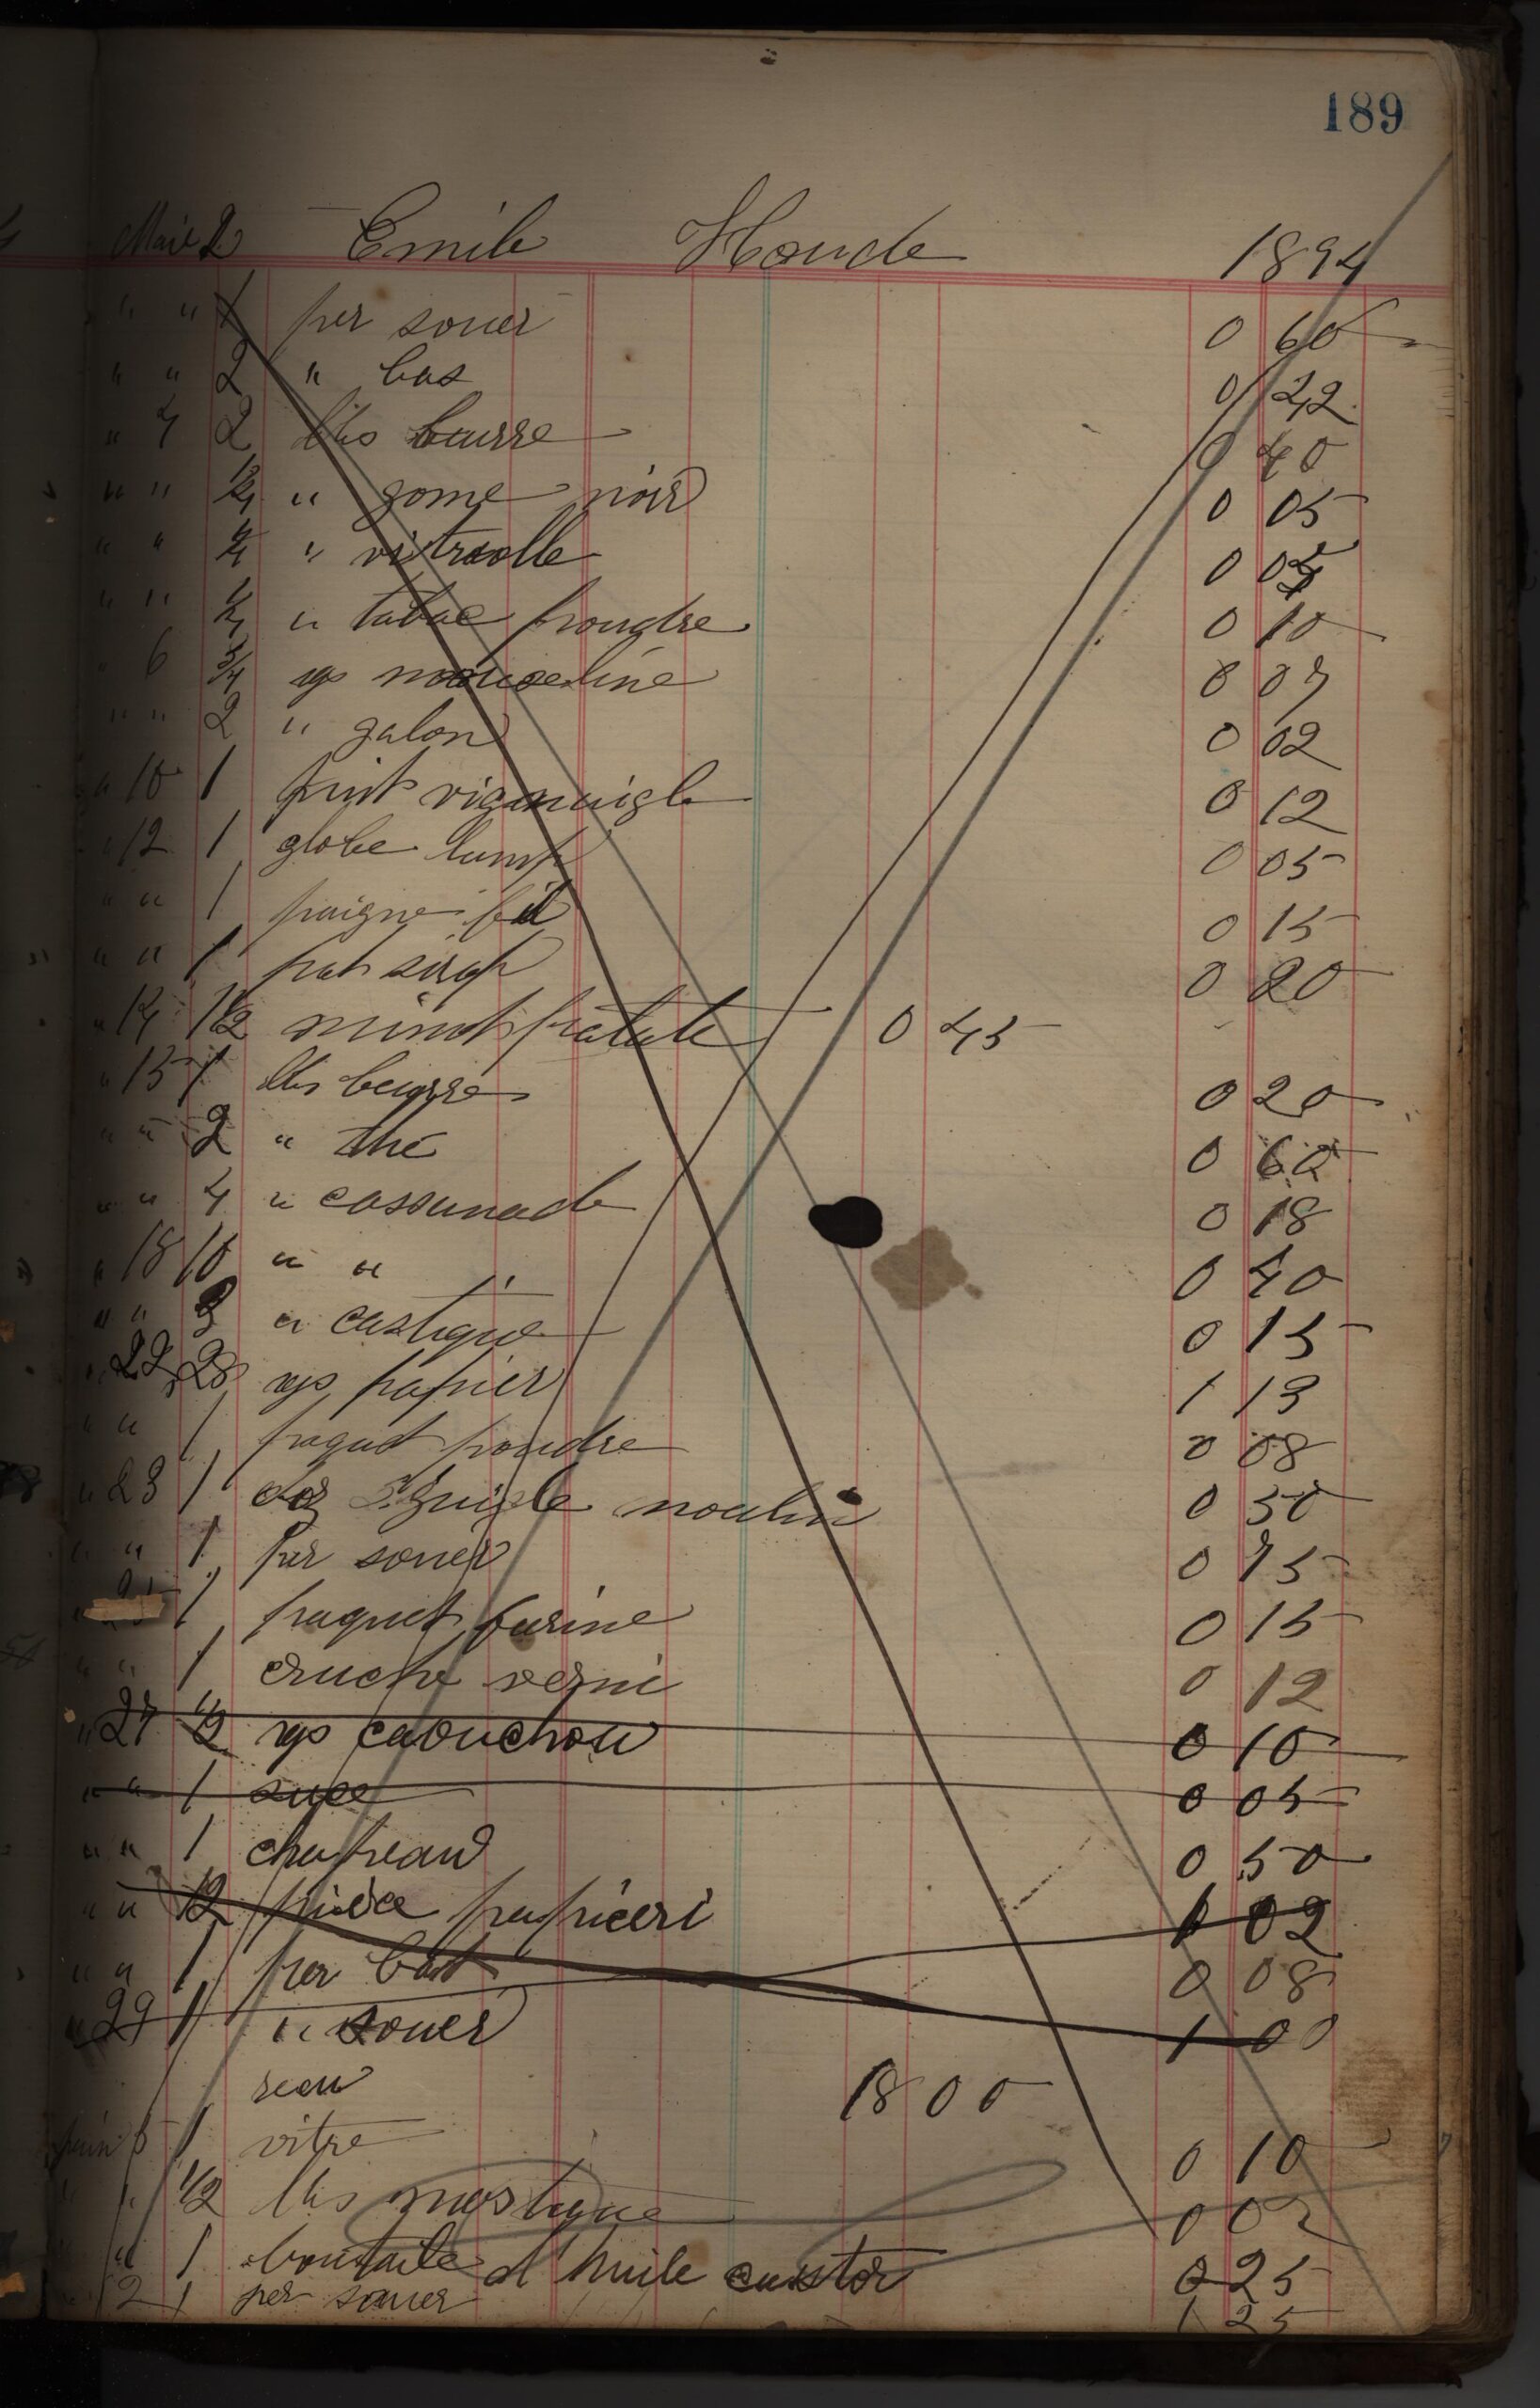 189
Mai 2 Emile Houde 1894
" " 1 per souer 0 60
" " 2 " bas 0 42
" 4 2 lbs beurre 0 40
" " 1/4 " gome noir 0 05
" " 1/4 " vitriolle 0 04
" " 1/4 " tabac poudre 0 10
" 6 3/4 vgs mouseline 0 07
" " 2 " galon 0 02
" 10 1 pint vignaigle 0 12
" 12 1 globe lamp 0 05
" " 1 paigne fil 0 15
" " 1 pat sirop 0 20
" 14 1 1/2 minot patate 0 45
" 15 1 lbs beurre 0 20
" " 2 " thé 0 60
" " 4 " cassunade 0 18
" 18 10 " " 0 40
" " 3 " castique 0 15
" 22 28 vgs papier 1 13
" " 1 paquet poudre 0 08
" 23 1 doz Eguille moulin 0 50
" " 1 per souer 0 75
" 25 1 paquet farine 0 15
" " 1 cruche verni 0 12
" 27 1/2 vgs caouchou 0 10
" " 1 suce 0 05
" " 1 chapeau 0 50
" " 12 pièce papiceri 1 02
" " 1 per bast 0 08
" 29 1 " souer 1 00
recu 18 00
juin 5 1 vitre 0 10
" " 1/2 lbs mastique 0 02
" " 1 boutaile d'huile castor 0 25
" 12 1 per souer 1 25